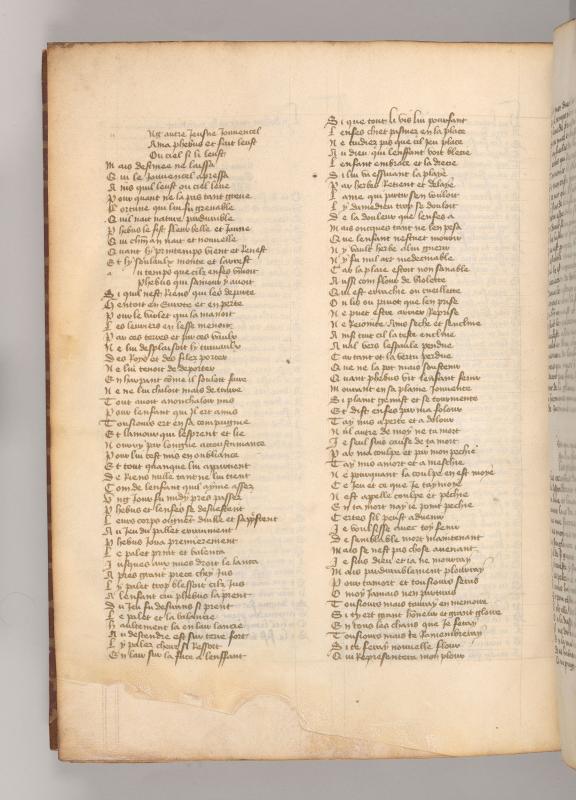 Ng autre Jeusne Jouvencel
Ama phebus et fait leust
Ou ciel si li leust
Mais destinee ne laissa
Qui le Jouvencel apressa
Mis quil leust ou ciel leve
Pour quant ne la pas tant greve
Fortune qui lui fu grevable
Quil nait nature pardurable
Phebus le fist fleur belle et Jaune
Qui chm an naist et nouvelle
Quant ly printemps vient et Renest
Et ly soulaulx monte et
u temps que cilz enfes vivoit
Phebus qui samour y avoit
Si quil nest Riens qui les depute
Hentoit en Eurote et en perte
Pour le varlet qui la manoit
Les levriers en lesse menoit
Par ces terres et par ces
Ne lui desplaisoit li travaulx
Des Roys et des filez porter
Ne lui tenoit de deporter
En harpant come il souloit faire
Ne ne lui chaloit mais de traire
Tout avoit anonchaloir mis
Pour lenfant qui ert amis
Tousiours ert en sa compaignie
Et lamour qui lesprent et lie
Nourry par longue acoustumance
Pour lui test mis en oubliance
Et tout quanque lui apartient
De Riens nulle tant ne lui tient
Com de lenfant quil ayme assez
Ung Jour fu midy pres passez
Phebus et lenfes se desvestent
Leurs corps oignent duille et sapprestent
A u Jeu du pallet erraument
Phebus Joua premierement
Le palet print et balenca
Jusques aux nues droit le lanca
Apres grant piece chey Jus
Ly palet trop blessoit cilz Jus
A lenfant cui phebus laprent
Du Jeu fu desirans si prent
Le palet et la balancie
Haultement la en lair lancie
Au descendre est sur terre fort
Ly palez cheuz si Ressort
En lair sur la face a lenffant
Si que tout li vis lui pourfant
Lenfes chiet pasmez en la place
Ne cuidiez pas que cil Jeu place
Au dieu qui lenffant voit blecie
Lenfant embrace et la drecie
Si lui va essuiant la playe
Par herbes Retient et delaye
Lame qui partir sen vouloit
Ly damedieu trop se douloit
De la douleur que lenfes a
Mais oncques tant ne len pesa
Que lenfant nestuet mourir
Ny vault herbe
Ny fu mil art medecinable
Car la plaie estoit non sanable
Aussi com flour de violette
Qui est errachie ou cueillette
Ou lis ou pavot que len prise
Ne puet estre arriere Reprise
Ne Rejointe Ains seche et sencline
Ainsi tint cil la teste encline
Aval vers lespaule pendue
Car tant ot la vertu perdue
Que ne la pot mais soustenir
Quant phebus vit lenfant fenir
Mourant en sa plaine Jouvente
Si plaint gemist et se tourmente
Et dist enfes par ma folour
Tay mis a perte et a dolour
Nul autre de moy ne ta mort
Je seul suis cause de ta mort
Par ma coulpe et par mon pechie
Tay mis amort et a meschie
Ne pourquant la coulpe en est moye
Ce Jeu et ce que Je taymoye
Nest appelle coulpe et pechie
En ta mort nay ie point pechie
Certes sil peust advenir
Je voulsisse avec toy fenir
De semblable mort maintenant
Mais se nest pas chose avenant
Je suis dieu et ia ne mourray
Mais pardurablement plouray
Pour ta mort et tousiours seras
O moy Jamais nen partiras
Tousiours mais tauray en memoire
Si ty ert grant honneur et grant gloire
En tous les chans que Je feray
Tousiours mais te Ramembreray
Si te feray nouvelle flour
Qui Representera mon plour